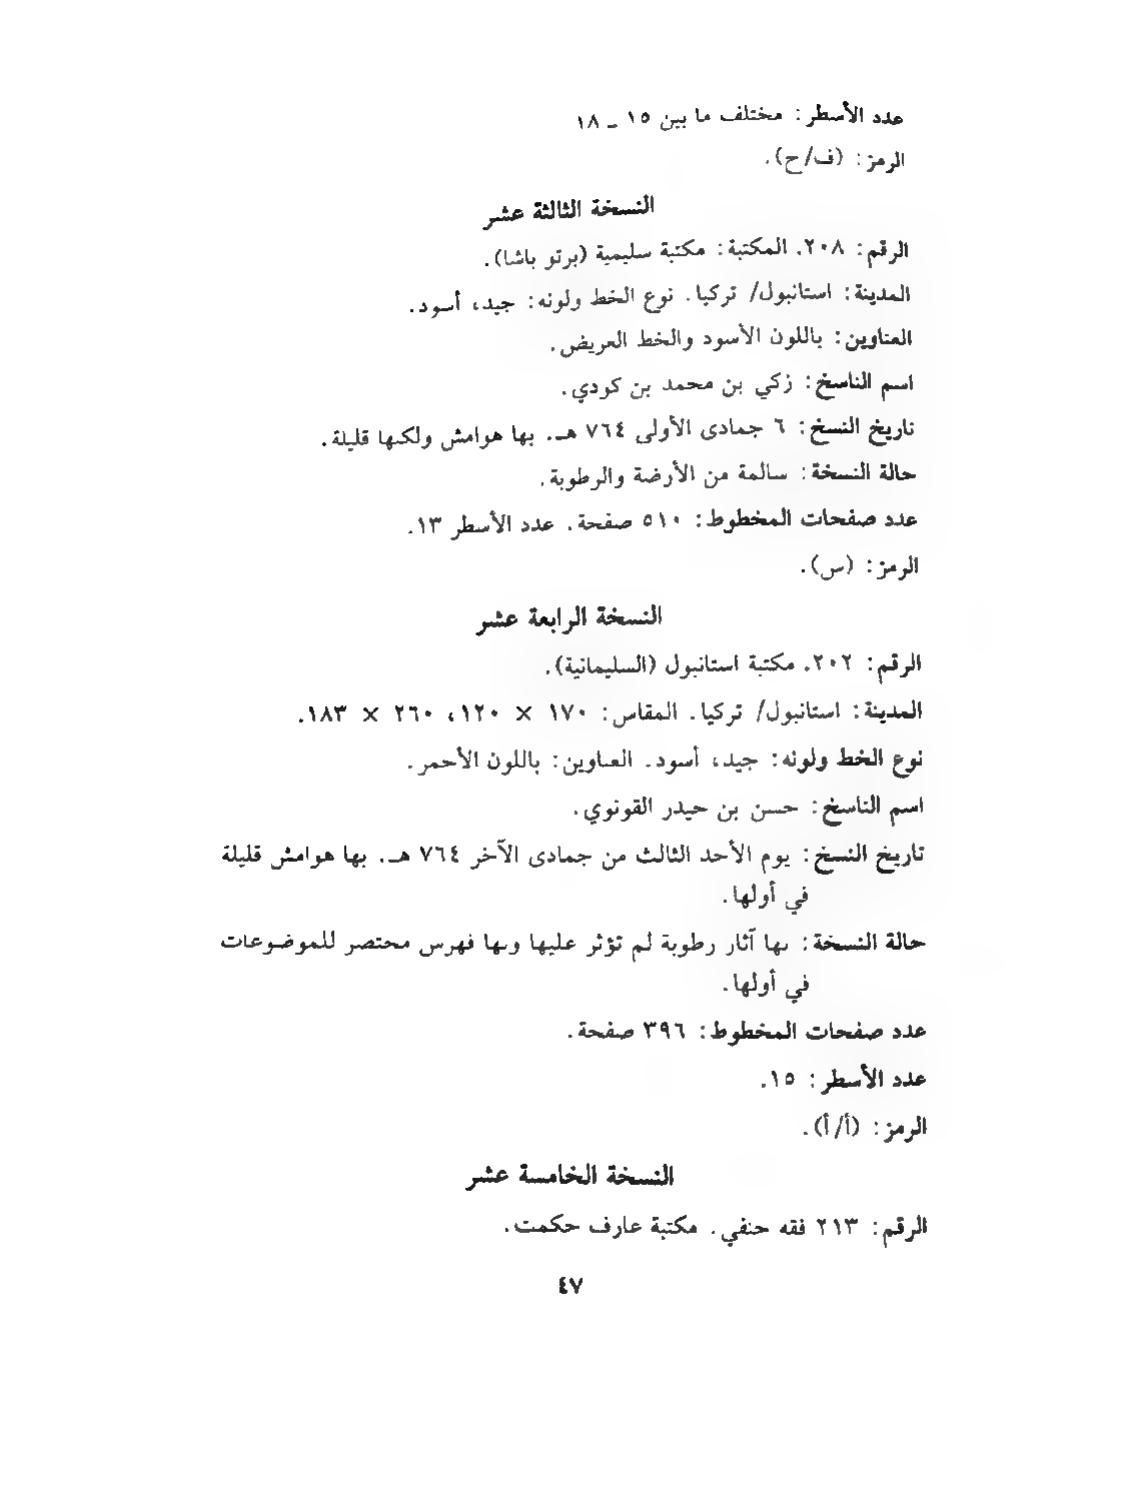 عدد الأسطر: مختلف ما بين ١٥ ـ ١٨
الرمز: (ف/ح).
النسخة الثالثة عشر
الرقم: ٢٠٨. المكتبة: مكتبة سليمية (برتو باشا).
المدينة: استانبول/ تركيا. نوع الخط ولونه: جيد، أسود.
العناوين: باللون الأسود والخط العريض.
اسم الناسخ: زكي بن محمد بن كودي.
تاريخ النسخ: ٦ جمادى الأولى ٧٦٤ هـ. بها هوامش ولكنها قليلة.
حالة النسخة: سالمة من الأرضة والرطوبة.
عدد صفحات المخطوط: ٥١٠ صفحة. عدد الأسطر ١٣.
الرمز: (س).
النسخة الرابعة عشر
الرقم: ٢٠٢. مكتبة استانبول (السليمانية).
المدينة: استانبول/ تركيا. المقاس: ١٧٠ × ١٢٠، ٢٦٠ × ١٨٣.
نوع الخط ولونه: جيد، أسود. العناوين: باللون الأحمر.
اسم الناسخ: حسن بن حيدر القونوي.
تاريخ النسخ: يوم الأحد الثالث من جمادى الآخر ٧٦٤ هـ. بها هوامش قليلة
في أولها.
حالة النسخة: بها آثار رطوبة لم تؤثر عليها وبها فهرس مختصر للموضوعات
في أولها.
عدد صفحات المخطوط: ٣٩٦ صفحة.
عدد الأسطر: ١٥.
الرمز: (أ/أ).
النسخة الخامسة عشر
الرقم: ٢١٣ فقه حنفي. مكتبة عارف حكمت.
٤٧